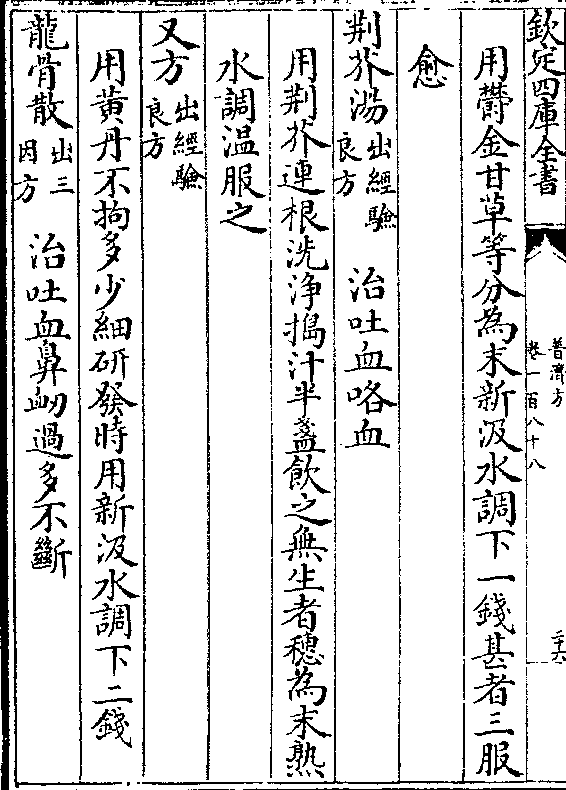 欽定四庫全書
普濟方
卷一百八十八
二十六
用欝金甘草等分為末新汲水調下一錢甚者三服
愈
荆芥湯出經驗良方 治吐血咯血
用荆芥連根洗浄搗汁半盞飲之無生者穗為末熟
水調温服之
又方出經驗良方
用黄丹不拘多少細研發時用新汲水調下二錢
龍骨散出三因方 治吐血鼻衂過多不斷